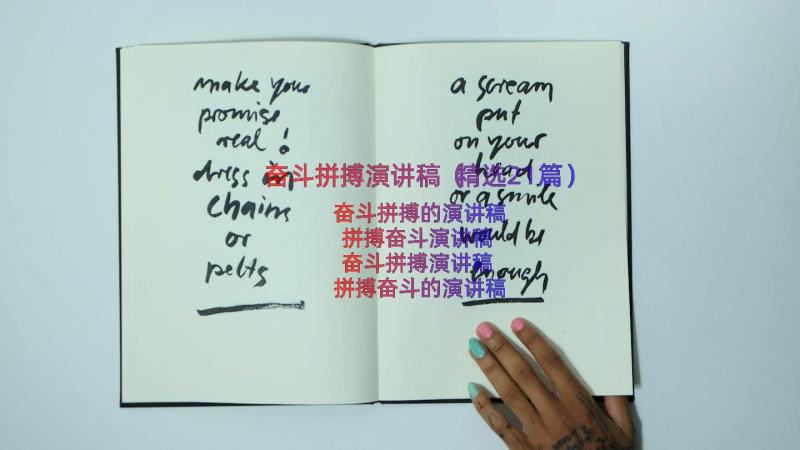 make your
promise
real!
dress in
chains
or
pelts
a scream
put
on your
head
or a smile
would be
enough
奋斗拼搏演讲稿（精选21篇）
奋斗拼搏的演讲稿
拼搏奋斗演讲稿
奋斗拼搏演讲稿
拼搏奋斗的演讲稿